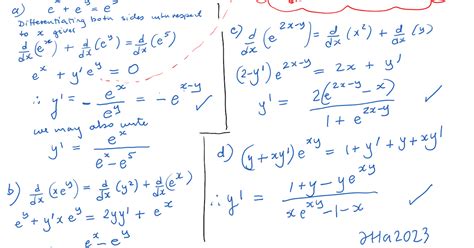 a) e^x + e^y = e^5
Differentiating both sides with respect
to x gives
d/dx(e^x) + d/dx(e^y) = d/dx(e^5)
e^x + y'e^y = 0
∴ y' = - e^x/e^y = -e^(x-y) ✓
we may also write
y' = e^x/(e^x - e^5)
b) d/dx(xe^y) = d/dx(y^2) + d/dx(e^x)
e^y + y'xe^y = 2yy' + e^x
e^x - e^y
c) d/dx(e^(2x-y)) = d/dx(x^2) + d/dx(y)
(2-y')e^(2x-y) = 2x + y'
y' = 2(e^(2x-y) - x)/(1 + e^(2x-y)) ✓
d) (y+xy')e^(xy) = 1+y'+y+xy'
∴ y' = (1+y-ye^(xy))/(xe^(xy)-1-x) ✓
JHa2023